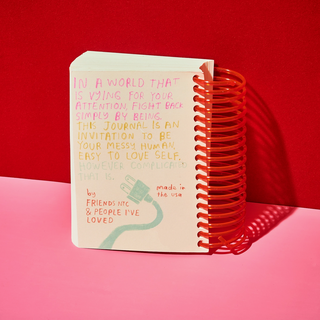 IN A WORLD THAT
IS VYING FOR YOUR
ATTENTION, FIGHT BACK
SIMPLY BY BEING.
THIS JOURNAL IS AN
INVITATION TO BE
YOUR MESSY, HUMAN,
EASY TO LOVE SELF,
HOWEVER COMPLICATED
by
FRIENDS NYC
& PEOPLE I'VE
LOVED
made in
the usa